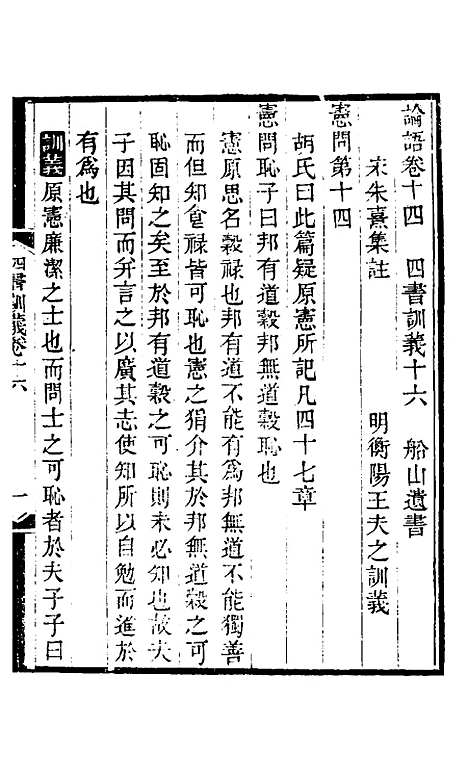 論語卷十四　四書訓義十六　船山遺書
宋朱熹集註　明衡陽王夫之訓義
憲問第十四
胡氏曰此篇疑原憲所記凡四十七章
憲問恥子曰邦有道穀邦無道穀恥也
憲原思名穀祿也邦有道不能有爲邦無道不能獨善
而但知食祿皆可恥也憲之狷介其於邦無道穀之可
恥固知之矣至於邦有道穀之可恥則未必知也故夫
子因其問而幷言之以廣其志使知所以自勉而進於
有爲也
訓義原憲廉潔之士也而問士之可恥者於夫子子曰
四書訓義卷十六　一